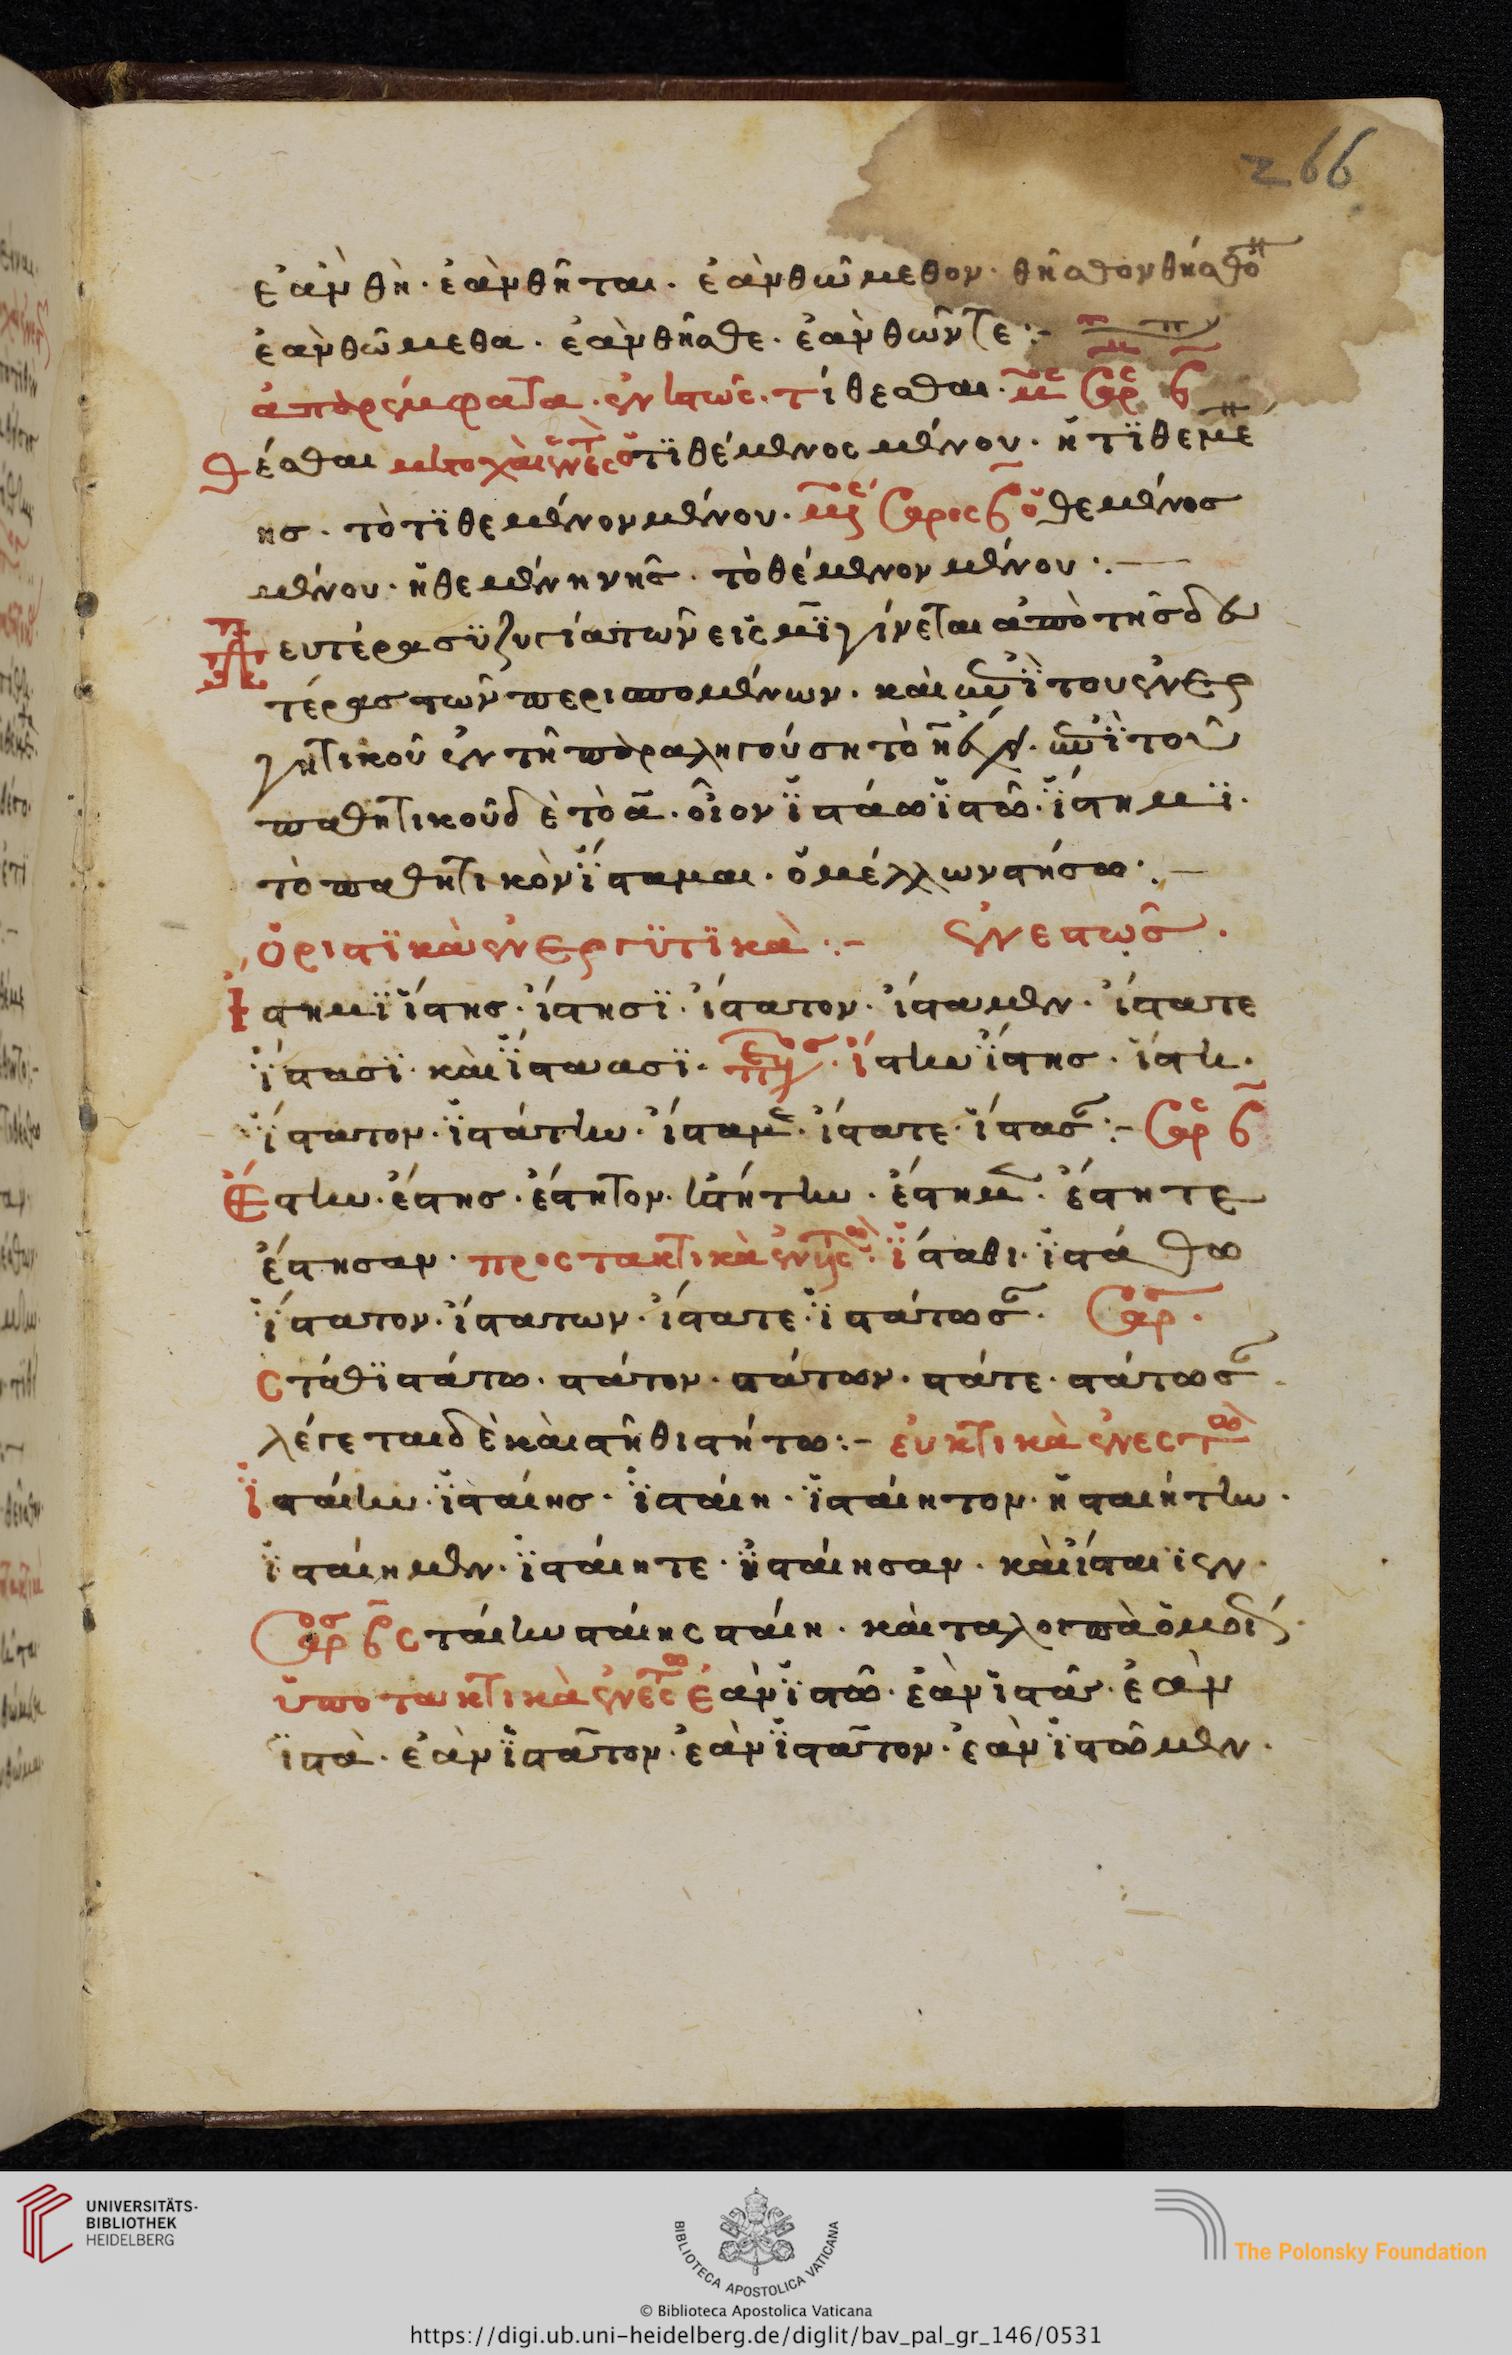 266
ἐὰν θῆ· ἐὰν θῆται· ἐὰν θώμεθον· θῆσθον θῆσθο
ἐὰν θώμεθα· ἐὰν θῆσθε· ἐὰν θῶνται:-
ἀπαρέμφατα· τίθεσθαι· μ ἀορ β
θέσθαι μετοχαὶ ὁ τϊθέμενος μένου· ἡ τϊθεμέ
νης· τὸ τϊθεμένον μένου· ἀορος β ὁ θεμένος
μένου· ἡ θεμένη νης· τὸ θέμενον μένου·:—
Δευτέρα συζυγία τῶν εἰς μϊ γίνεται ἀπὸ τῆς δευ
τέρας τῶν περισπομένων· καὶ ἐπὶ τοῦ ἐνερ
γητικοῦ ἐν τῆ παραληγούση τὸ η ἔχει· ἐπὶ τοῦ
παθητικοῦ δὲ τὸ α· οἷον ἱστάω ἱστῶ· ἵστημϊ·
τὸ παθητικὸν ἵσταμαι· ὁ μέλλων στήσω·:—
ὁριστϊκὰ ἐνεργϋτϊκὰ:- ἐνεστῶς·
Ἵστημϊ ἵστης· ἵστησϊ· ἵστατον· ἵσταμεν· ἵστατε
ἵστασϊ καὶ ἱστάασϊ· ἵστην ἵστης· ἵστη·
ἵστατον· ἱστάτην· ἵσταμεν· ἵστατε· ἵστασαν:- ἀορ β
Ἔστην· ἔστης· ἔστητον· ἐστήτην· ἔστημεν· ἔστητε
ἔστησαν· προστακτικὰ ἵσταθι· ἱστάθω
ἵστατον· ἵστατων· ἵστατε· ἱστάτωσαν· ἀορ·
Στάθϊ στάτω· στάτον· στάτων· στάτε· στάτωσαν
λέγεται δὲ καὶ στῆθι στήτω:- εὐκτικὰ ἐνεστω
ἱσταίην· ἱσταίης· ἱσταίη· ἱσταίητον· ἡσταιήτην·
ἱσταίημεν· ἱσταίητε· ἡσταίησαν· καὶ ἱσταῖεν·
ἀορ β σταίην σταίης σταίη· καὶ τα λοιπὰ ὁμοί
ὑποτακτικὰ ἐὰν ἱστῶ· ἐὰν ἱστᾶς· ἐὰν
ἱστὰ· ἐὰν ἱστᾶτον· ἐὰν ἱστᾶτον· ἐὰν ἱστῶμεν·
UNIVERSITÄTS-
BIBLIOTHEK
HEIDELBERG
BIBLIOTECA APOSTOLICA VATICANA
The Polonsky Foundation
© Biblioteca Apostolica Vaticana
https://digi.ub.uni-heidelberg.de/diglit/bav_pal_gr_146/0531